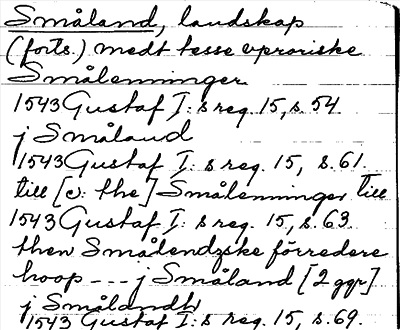 Småland, landskap
(forts.) medt tesse uproriske
Smålenninger
1543 Gustaf I:s reg. 15, s. 54
j Småland
1543 Gustaf I:s reg. 15, s. 61.
till [ɔ: the] Smålenninger till
1543 Gustaf I:s reg. 15, s. 63
then Smålendzske förredere
hoop --- j Småland [2 ggr]
j Smålandh
1543 Gustaf I:s reg. 15, s. 69.